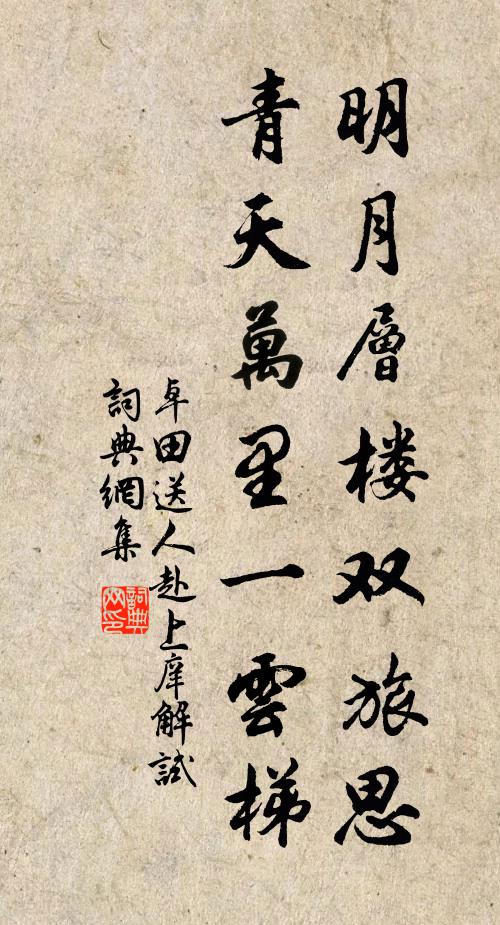 明月層楼双旅思
青天萬里一雲梯
卓田送人赴上庠解試
詞典網集
詞典网印